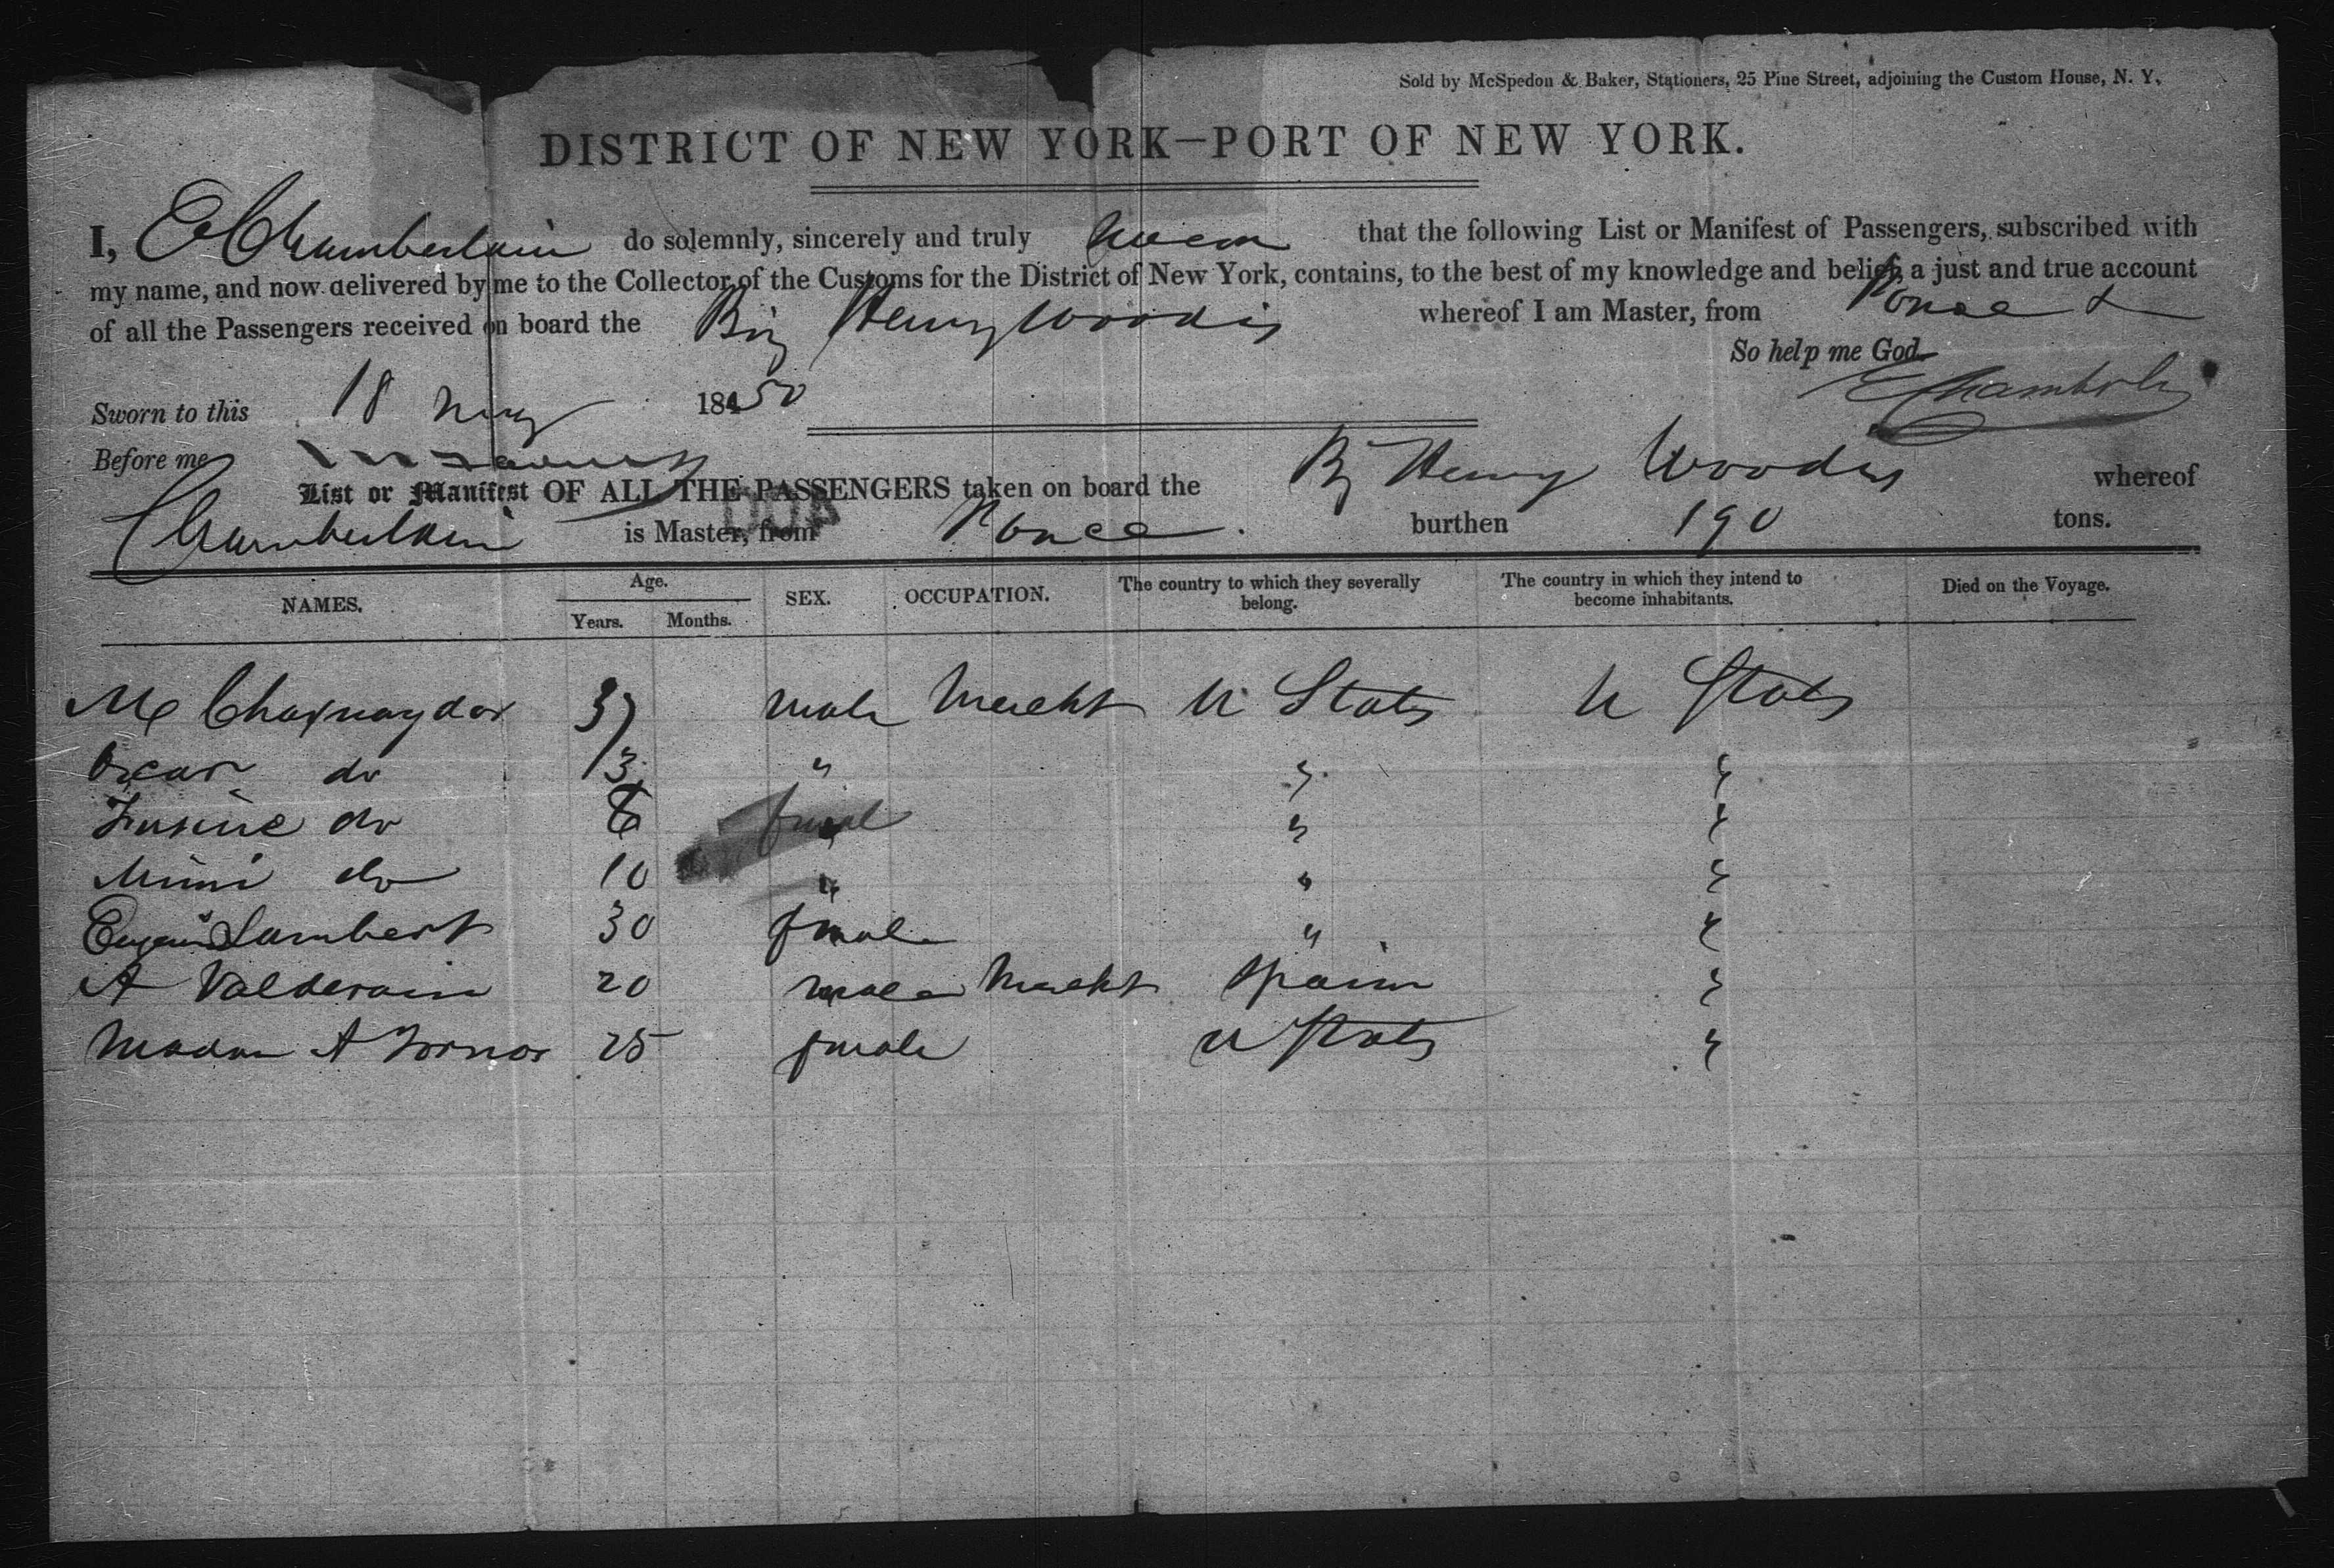 Sold by McSpedon & Baker, Stationers, 25 Pine Street, adjoining the Custom House, N. Y.
DISTRICT OF NEW YORK—PORT OF NEW YORK.
I, E Chamberlain do solemnly, sincerely and truly Swear that the following List or Manifest of Passengers, subscribed with
my name, and now delivered by me to the Collector of the Customs for the District of New York, contains, to the best of my knowledge and belief, a just and true account
of all the Passengers received on board the Brig Henry Woodis whereof I am Master, from Ponce
So help me God.
E Chamberlin
Sworn to this 18 May 1850
Before me
List or Manifest OF ALL THE PASSENGERS taken on board the Bg Henry Woodis whereof
Chamberlain is Master, from Ponce. burthen 190 tons.
NAMES. Age. Years. Months. SEX. OCCUPATION. The country to which they severally belong. The country in which they intend to become inhabitants. Died on the Voyage.
M 37 male Mercht U States U States
Oscar do 13 " " "
do 6 femal " "
Mimi do 10 " " "
Lambert 30 female " "
A 20 male Mercht Spain "
Madam A 25 female U States "